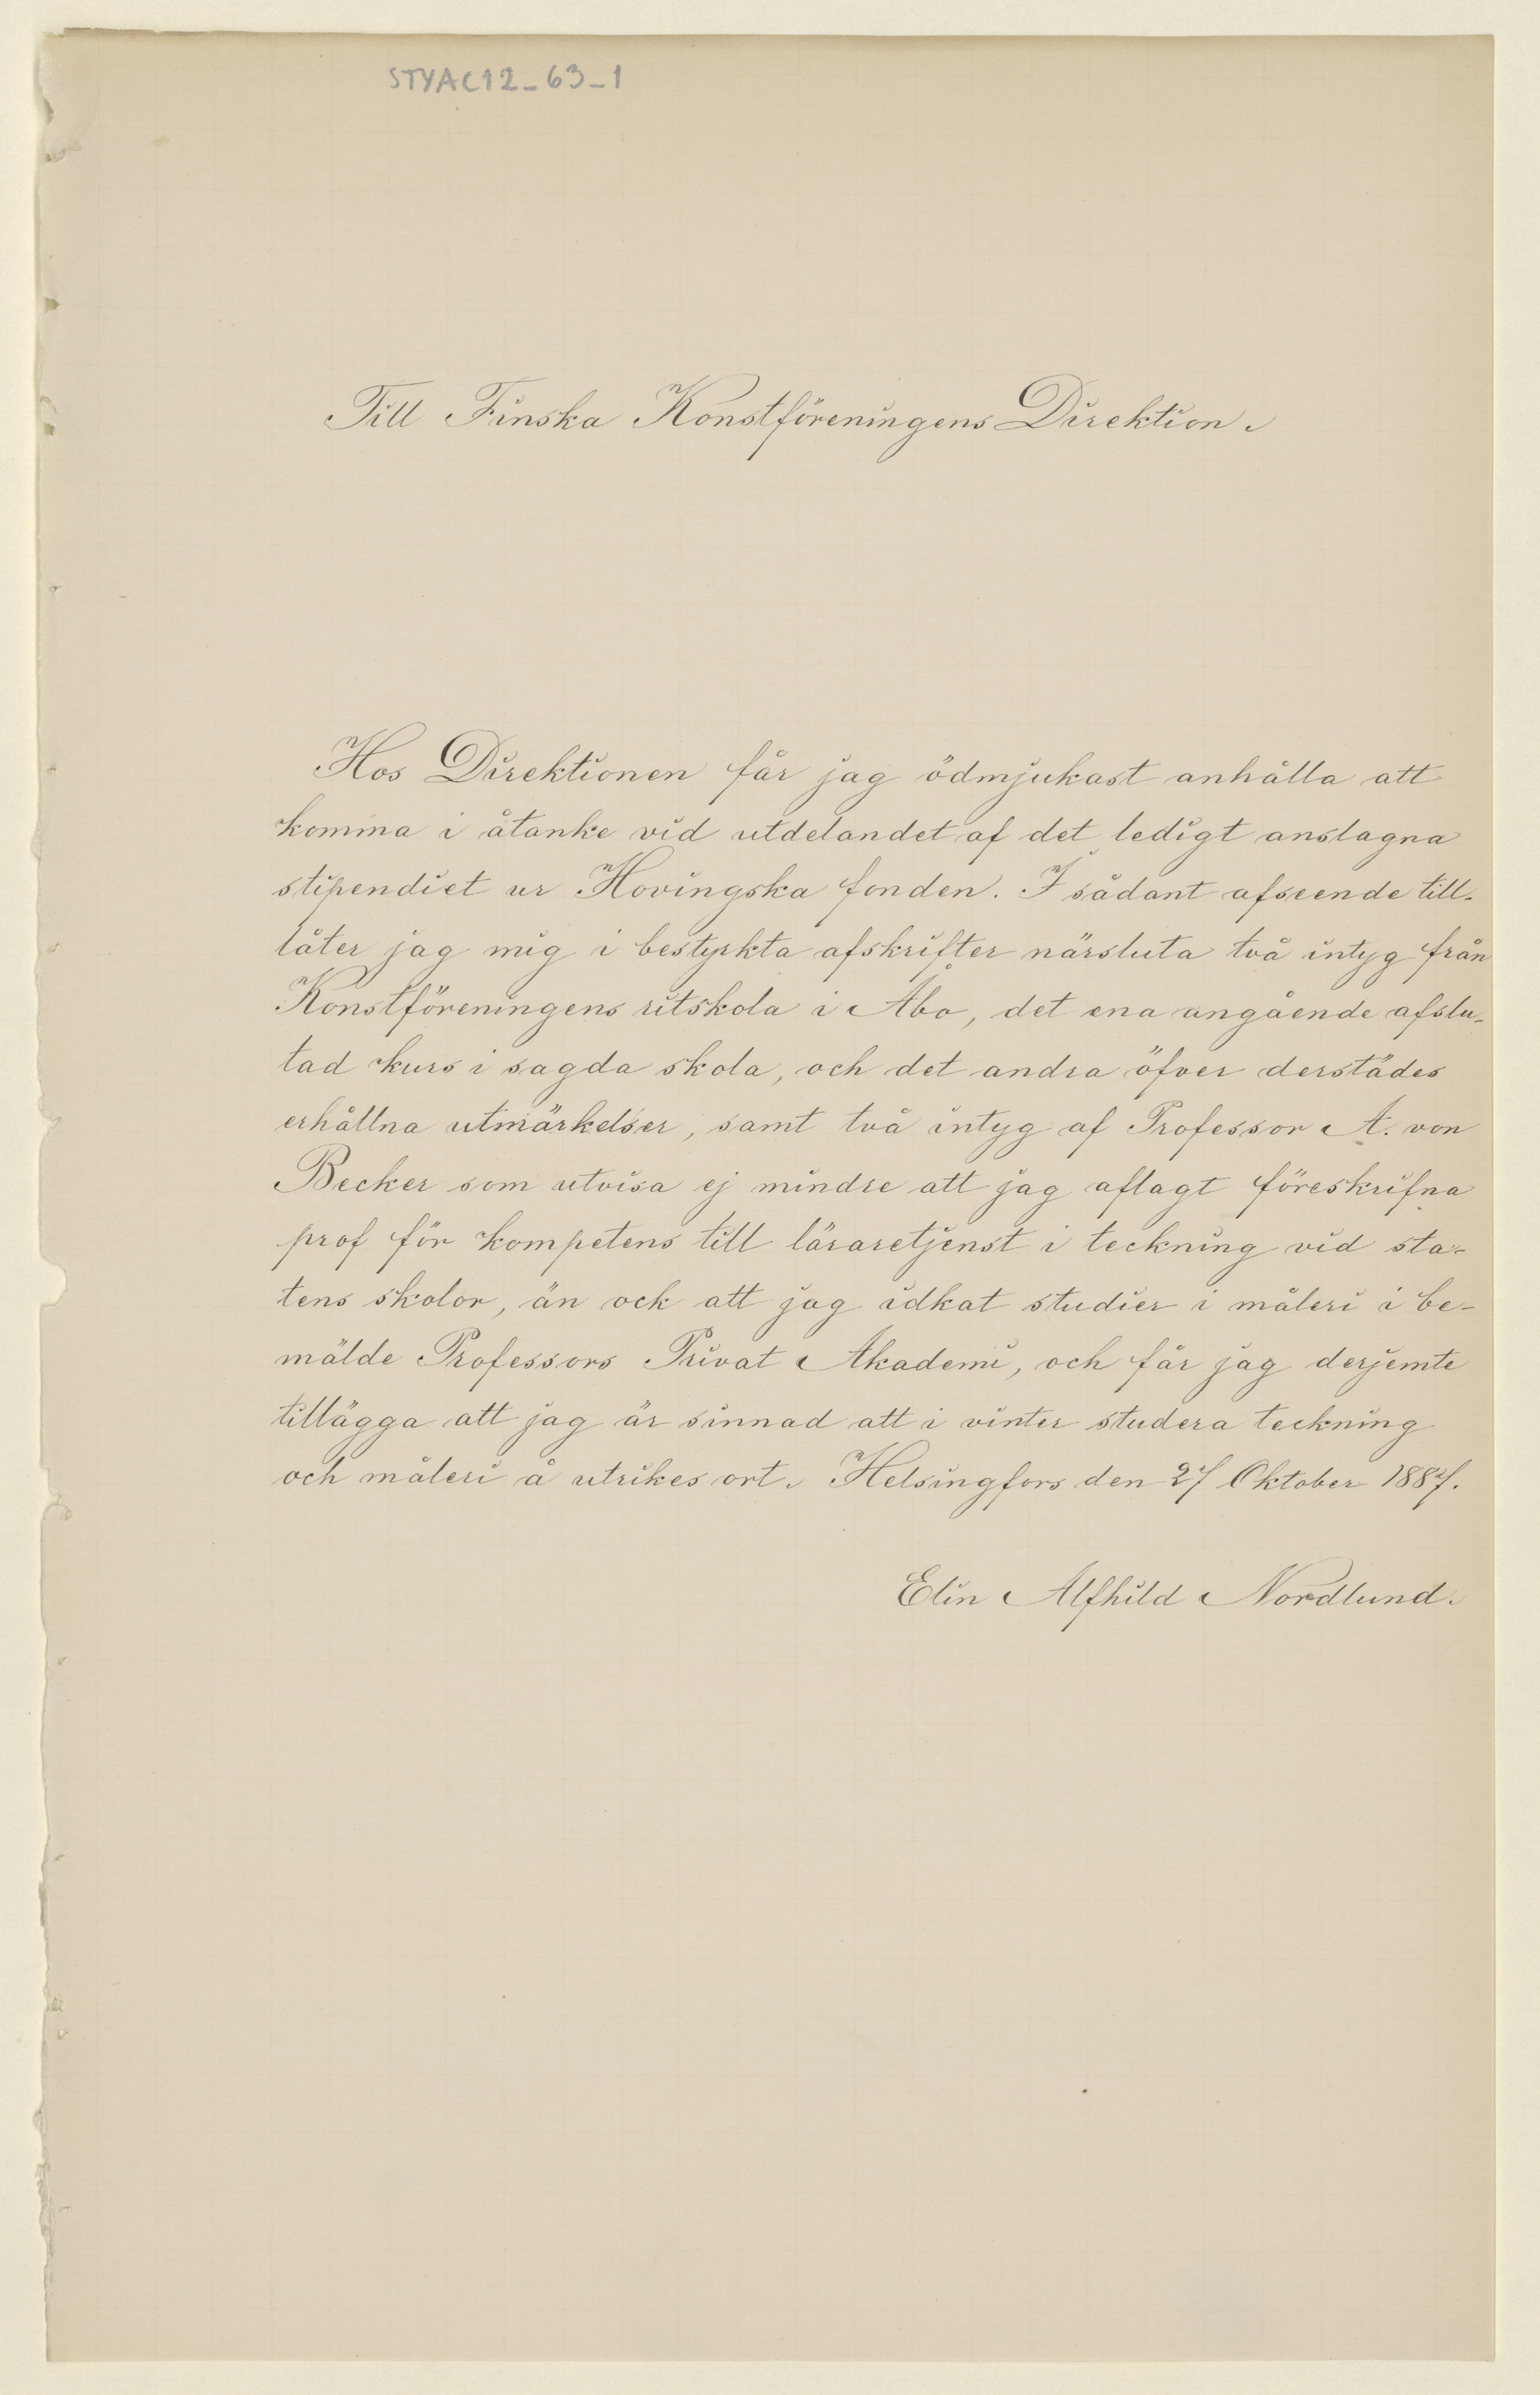 STYAC12_63_1
Till Finska Konstföreningens Direktion.
Hos Direktionen får jag ödmjukast anhålla att
komma i åtanke vid utdelandet af det ledigt anslagna
stipendiet ur Hovingska fonden. I sådant afseende till-
låter jag mig i bestyrkta afskrifter närsluta två intyg från
Konstföreningens ritskola i Åbo, det ena angående afslu-
tad kurs i sagda skola, och det andra öfver derstädes
erhållna utmärkelser, samt två intyg af Professor A. von
Becker som utvisa ej mindre att jag aflagt föreskrifna
prof för kompetens till läraretjenst i teckning vid sta-
tens skolor, än ock att jag idkat studier i måleri i be-
mälde Professors Privat Akademi, och får jag derjemte
tillägga att jag är sinnad att i vinter studera teckning
och måleri å utrikes ort. Helsingfors den 27 Oktober 1887.
Elin Alfhild Nordlund.